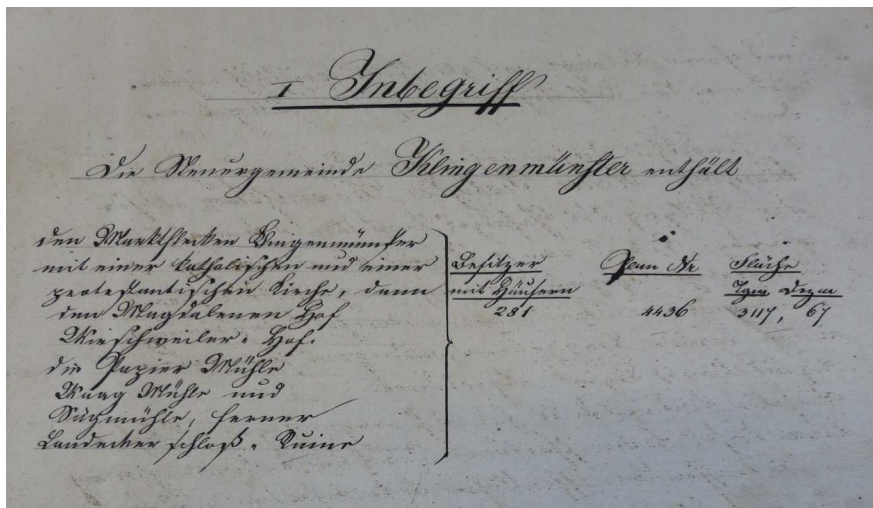 I Inbegriff
Die Steuergemeinde Klingenmünster enthält
den Marktflecken Klingenmünster
mit einer katholischen und einer
protestantischen Kirche, dann
den Magdalenen Hof
Hof.
die Papier Mühle
Waag Mühle und
Sägmühle, ferner
Landecker Schloß-Ruine
Besitzer
mit Häusern
281
Plan Nr
4436
Fläche
Tgw Dezm
3117, 67